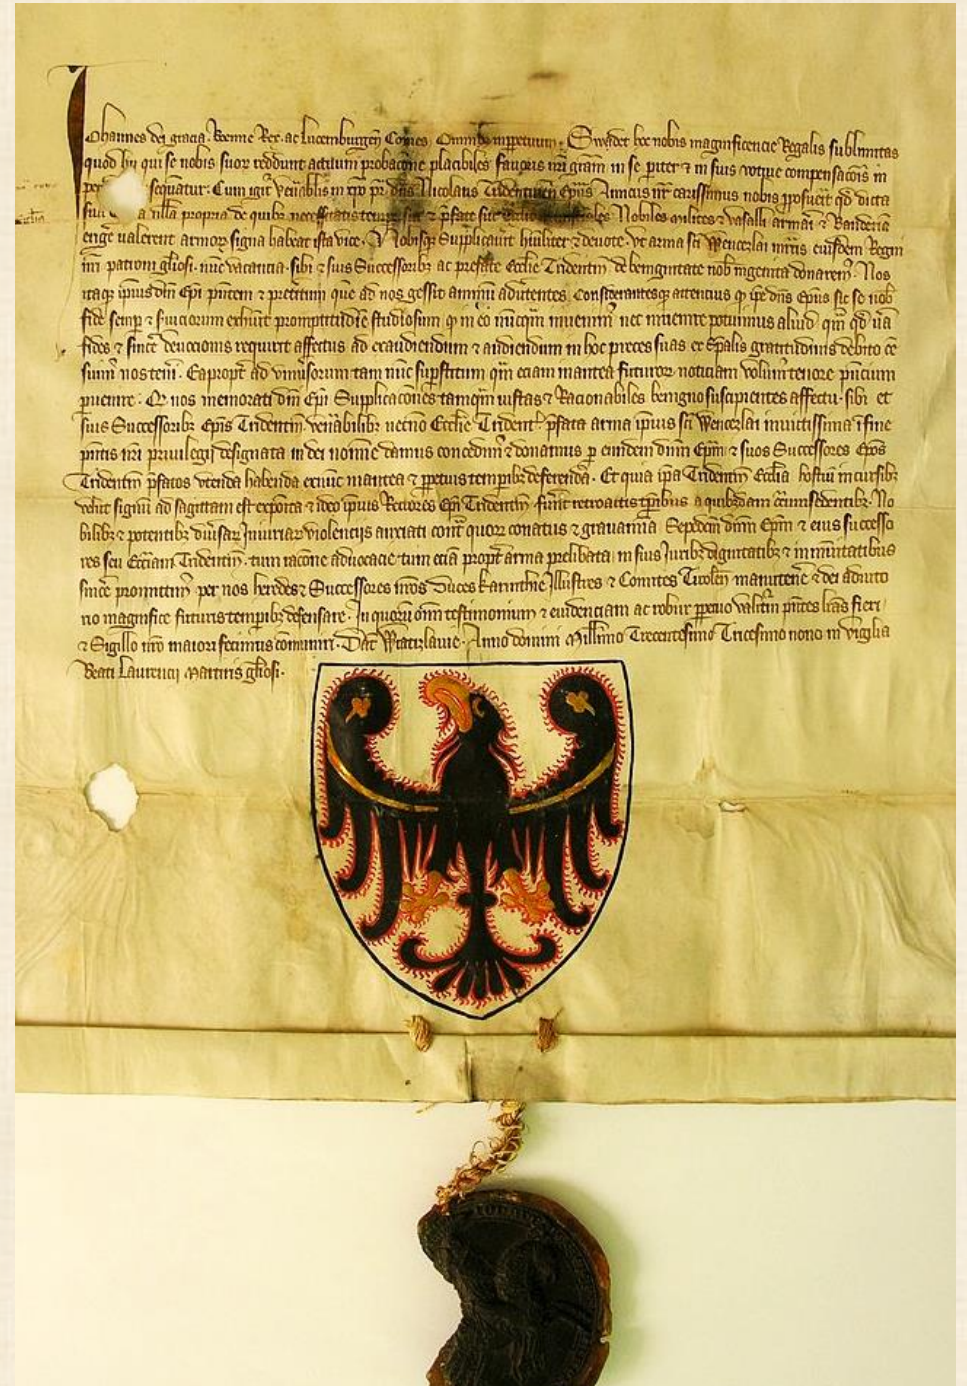 Johannes dei gracia Boemie Rex ac Lucemburgen̄ Comes Omnibꝫ imperpetuum. Swadet hoc nobis magnificencie Regalis sublimitas
quod hii qui se nobis suor reddunt actuum probacōne placibiles fauoris nr̄i gr̄am in se pariter ⁊ in suis votiue compensacōis in
sequatur. Cum igit venerabilis in xpō pr̄ dn̄s Nicolaus Tridentinen̄ Ep̄us Amicus nr̄ carissimus nobis proposuerit qd̄ dicta
villa propria de quibꝫ necessitatis Nobiles milites ⁊ vasalli armari ⁊ Banderia
erige ualerent armorꝫ signa habeat ista vice. Nobisqꝫ Supplicauit hūiliter ⁊ deuote. vt arma scī Wencezlai mr̄is eiusdem Regni
nr̄i patroni gl̄iosi. nūc vacancia. sibi ⁊ suis Successoribꝫ ac prefate Eccl̄ie Tridentin̄ de benignitate nob ingenita donarem̄. Nos
itaqꝫ ipius dn̄i Ep̄i ⁊ preteritum que ad nos gessit animū aduertentes. Considerantesqꝫ attencius qꝫ ip̄e dn̄s Ep̄us sic se nob
fide semp ⁊ exhibuit promptitudīe studiosum qꝫ in eo nūcqm̄ inuenim̄ nec inuenire potuimus aliud qm̄ qd̄
fides ⁊ sincē deuocionis requirit affectus ad exaudiendum ⁊ audiendum in hoc preces suas ex gratitudinis debito
sumꝰ nos teni. Eapropt ad vniūsorum tam nūc supstitum qm̄ eciam inantea futuror noticiam volumꝰ tenore pn̄cium
puenire. Qꝫ nos memorati dn̄i Ep̄i Supplicacōnes tamqm̄ iustas ⁊ Racionabiles benigno suscipientes affectu. sibi et
suis Successoribꝫ Ep̄is Tridentin̄ ven̄abilibꝫ necnō Eccl̄ie Trident p̄fata arma ipius scī Wencezlai inuictissima in fine
pn̄tis nr̄i priuilegij designata in dei noīe damus concedim̄ ⁊ donamus p eundem dn̄m Ep̄m ⁊ suos Successores Ep̄os
Tridentin̄ p̄fatos vtenda habenda exnūc inantea ⁊ ppetuis tempibꝫ deferenda. Et quia ip̄a Tridentin̄ Eccl̄ia hostiū incursibꝫ
velut signū ad sagittam est exposita ⁊ ideo ipius Rectores Ep̄i Tridentin̄ fuerit retroactis tp̄ibus a quibꝫdam circūsedentibꝫ. No
bilibꝫ ⁊ potentibꝫ diuersar Iniuriar violencijs conatus ⁊ grauamina Sepedcm̄ dn̄m Ep̄m ⁊ eius successo
res seu Eccl̄iam Tridentin̄. tum racōne aduocacie. tum eciā propt arma prelibata in suis Iuribꝫ dignitatibꝫ ⁊ inmunitatibus
sincē promittim̄ per nos heredes ⁊ Successores nr̄os Duces Karinthie Illustres ⁊ Comites Tirolen̄ manutenē ⁊ dei adiuto
rio magnifice futuris tempibꝫ defensare. In quorū om̄i testimonium ⁊ euidenciam ac robur ppetuo valitur pn̄tes lr̄as fieri
⁊ Sigillo nr̄o maiori fecimus cōmuniri. Dat̄ Wratizlauie. Anno domini Millīmo Trecentesimo Tricesimo nono in vigilia
Beati Laurencij Martiris gl̄iosi.